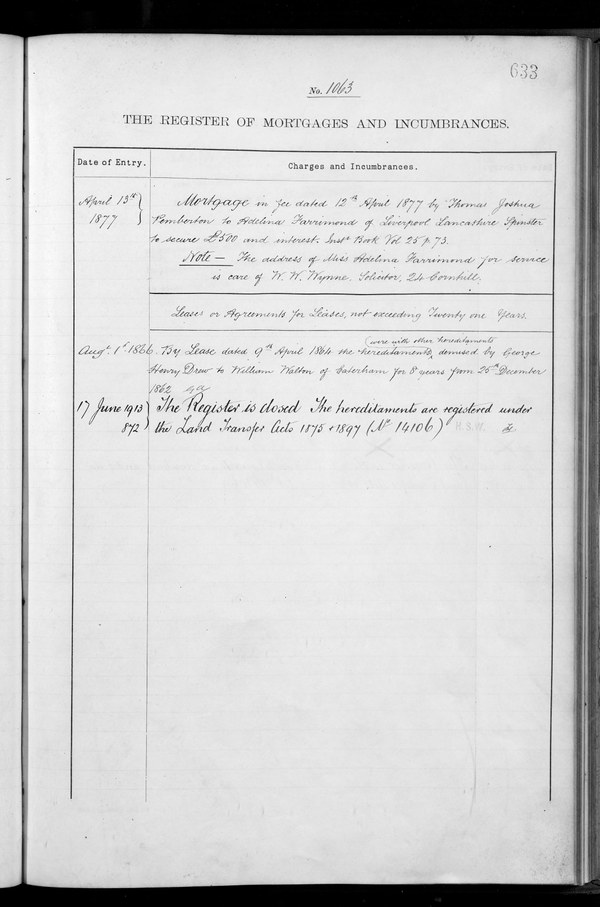 633
No. 1063
THE REGISTER OF MORTGAGES AND INCUMBRANCES.
Date of Entry.
Charges and Incumbrances.
April 13th 1877
Mortgage in fee dated 12th April 1877 by Thomas Joshua
Pemberton to Adelina Farrimond of Liverpool Lancashire Spinster
to secure £500 and interest. Instt Book Vol 25 p. 73.
Note — The address of Miss Adelina Farrimond for service
is care of W. W. Wynne, Solicitor, 24 Cornhill.
Leases or Agreements for Leases, not exceeding Twenty one Years.
(were with other hereditaments
Augt. 1st 1866. By Lease dated 9th April 1864 the hereditaments, demised by George
Henry Drew to William Walton of Caterham for 8 years from 25th December
1862
17 June 1913
872
The Register is closed The hereditaments are registered under
the Land Transfer Acts 1875 & 1897 (No 14106)